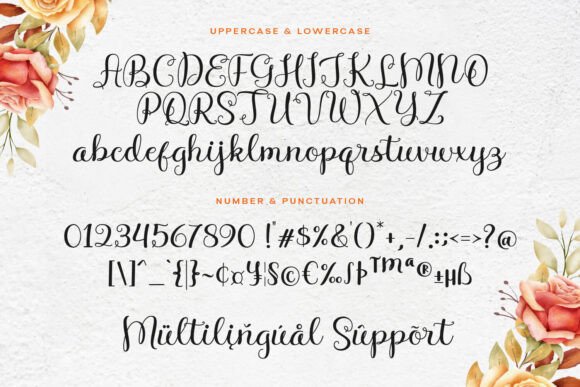 UPPERCASE & LOWERCASE
ABCDEFGHIJKLMNO
PQRSTUVWXYZ
abcdefghijklmnopqrstuvwxyz
NUMBER & PUNCTUATION
01234567890 !"#$%&'()*+,-/.:;<=>?@
[\]^_`{|}~¢¤¥|§©€‰ſÞ™ª®±µß
Mültilįñgúål Súppõrt